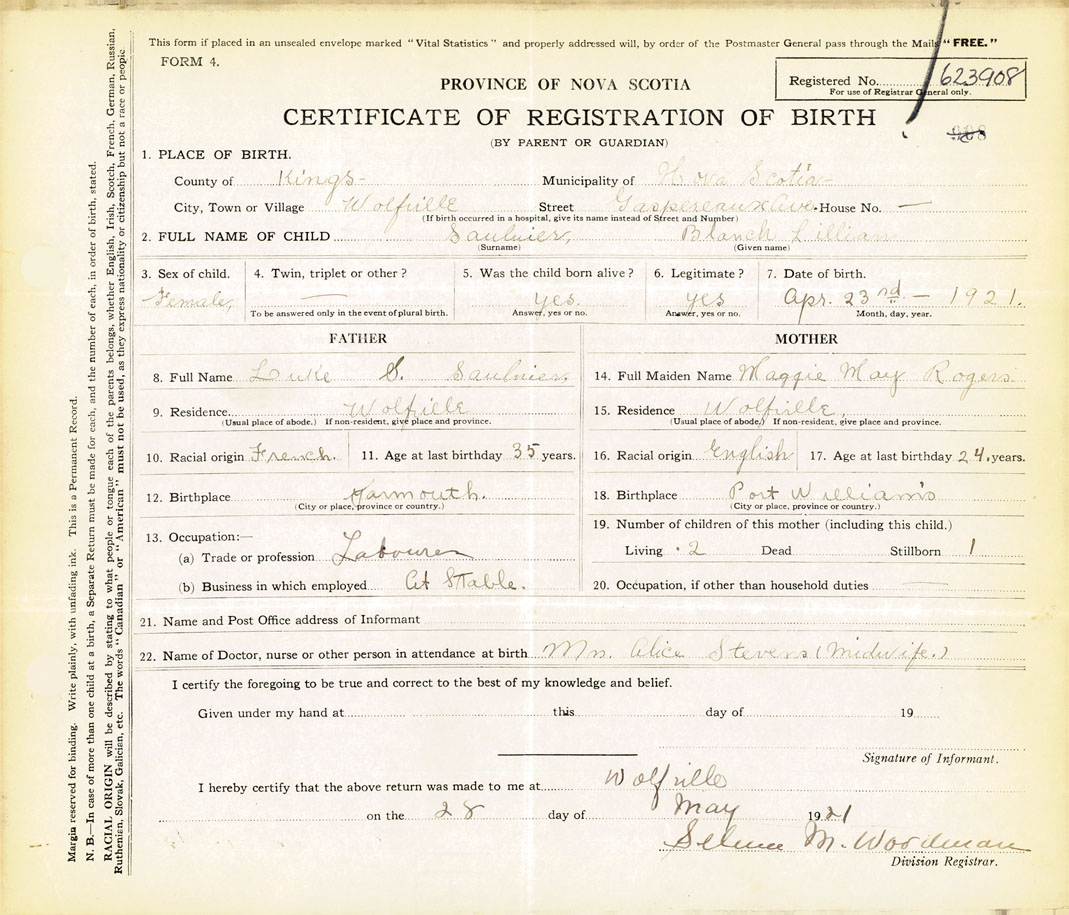 This form if placed in an unsealed envelope marked "Vital Statistics" and properly addressed will, by order of the Postmaster General pass through the Mails "FREE."
FORM 4.
Registered No. 623908
For use of Registrar General only.
908
PROVINCE OF NOVA SCOTIA
CERTIFICATE OF REGISTRATION OF BIRTH
(BY PARENT OR GUARDIAN)
1. PLACE OF BIRTH.
County of Kings Municipality of Nova Scotia
City, Town or Village Wolfville Street Gaspereaux Ave. House No. —
(If birth occurred in a hospital, give its name instead of Street and Number)
2. FULL NAME OF CHILD Saulnier, Blanch Lillian
(Surname) (Given name)
3. Sex of child. 4. Twin, triplet or other? 5. Was the child born alive? 6. Legitimate? 7. Date of birth.
Female, — yes. yes Apr. 23rd — 1921.
To be answered only in the event of plural birth. Answer, yes or no. Answer, yes or no. Month, day, year.
FATHER MOTHER
8. Full Name Luke S. Saulnier. 14. Full Maiden Name Maggie May Rogers.
9. Residence Wolfville 15. Residence Wolfville,
(Usual place of abode.) If non-resident, give place and province. (Usual place of abode.) If non-resident, give place and province.
10. Racial origin French. 11. Age at last birthday 35 years. 16. Racial origin English 17. Age at last birthday 24. years.
12. Birthplace Yarmouth. 18. Birthplace Port Williams
(City or place, province or country.) (City or place, province or country.)
13. Occupation:— 19. Number of children of this mother (including this child.)
(a) Trade or profession Labourer Living 2 Dead Stillborn 1
(b) Business in which employed At Stable. 20. Occupation, if other than household duties
21. Name and Post Office address of Informant
22. Name of Doctor, nurse or other person in attendance at birth Mrs. Alice Stevens (Midwife.)
I certify the foregoing to be true and correct to the best of my knowledge and belief.
Given under my hand at this day of 19
Signature of Informant.
I hereby certify that the above return was made to me at Wolfville
on the 28 day of May 1921
Selma M. Woodman
Division Registrar.
Margin reserved for binding. Write plainly, with unfading ink. This is a Permanent Record.
N. B.—In case of more than one child at a birth, a Separate Return must be made for each, and the number of each, in order of birth, stated.
RACIAL ORIGIN will be described by stating to what people or tongue each of the parents belongs, whether English, Irish, Scotch, French, German, Russian,
Ruthenian, Slovak, Galician, etc. The words "Canadian" or "American" must not be used, as they express nationality or citizenship but not a race or people